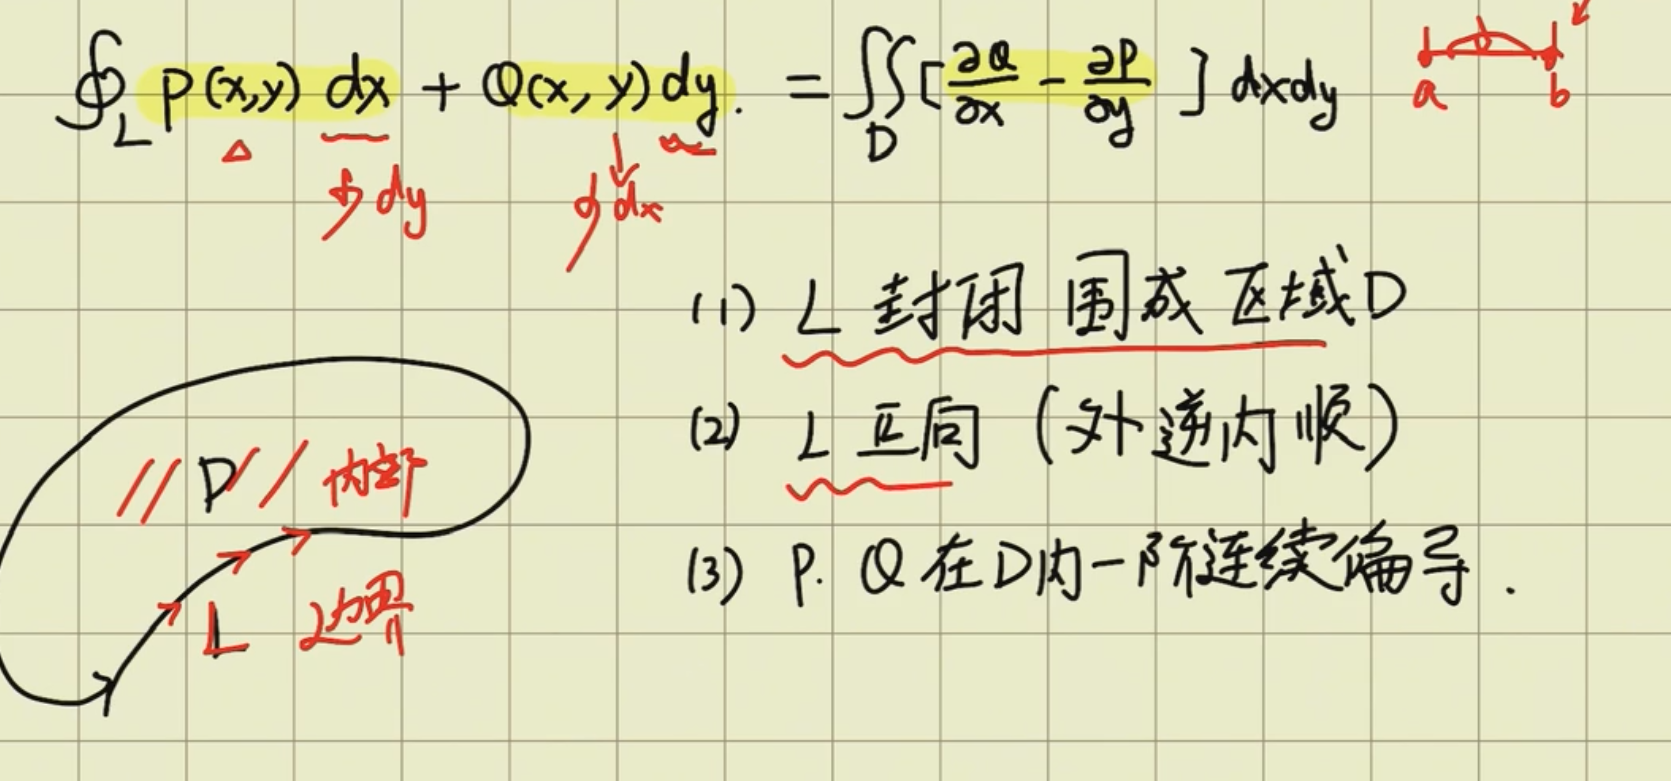 ∮_L P(x,y) dx + Q(x,y) dy. = ∬_D [∂Q/∂x − ∂P/∂y] dxdy
a b
dy dx
(1) L 封闭 围成 区域D
(2) L 正向 (外逆内顺)
D 内部
(3) P. Q 在D内一阶连续偏导.
L 边界